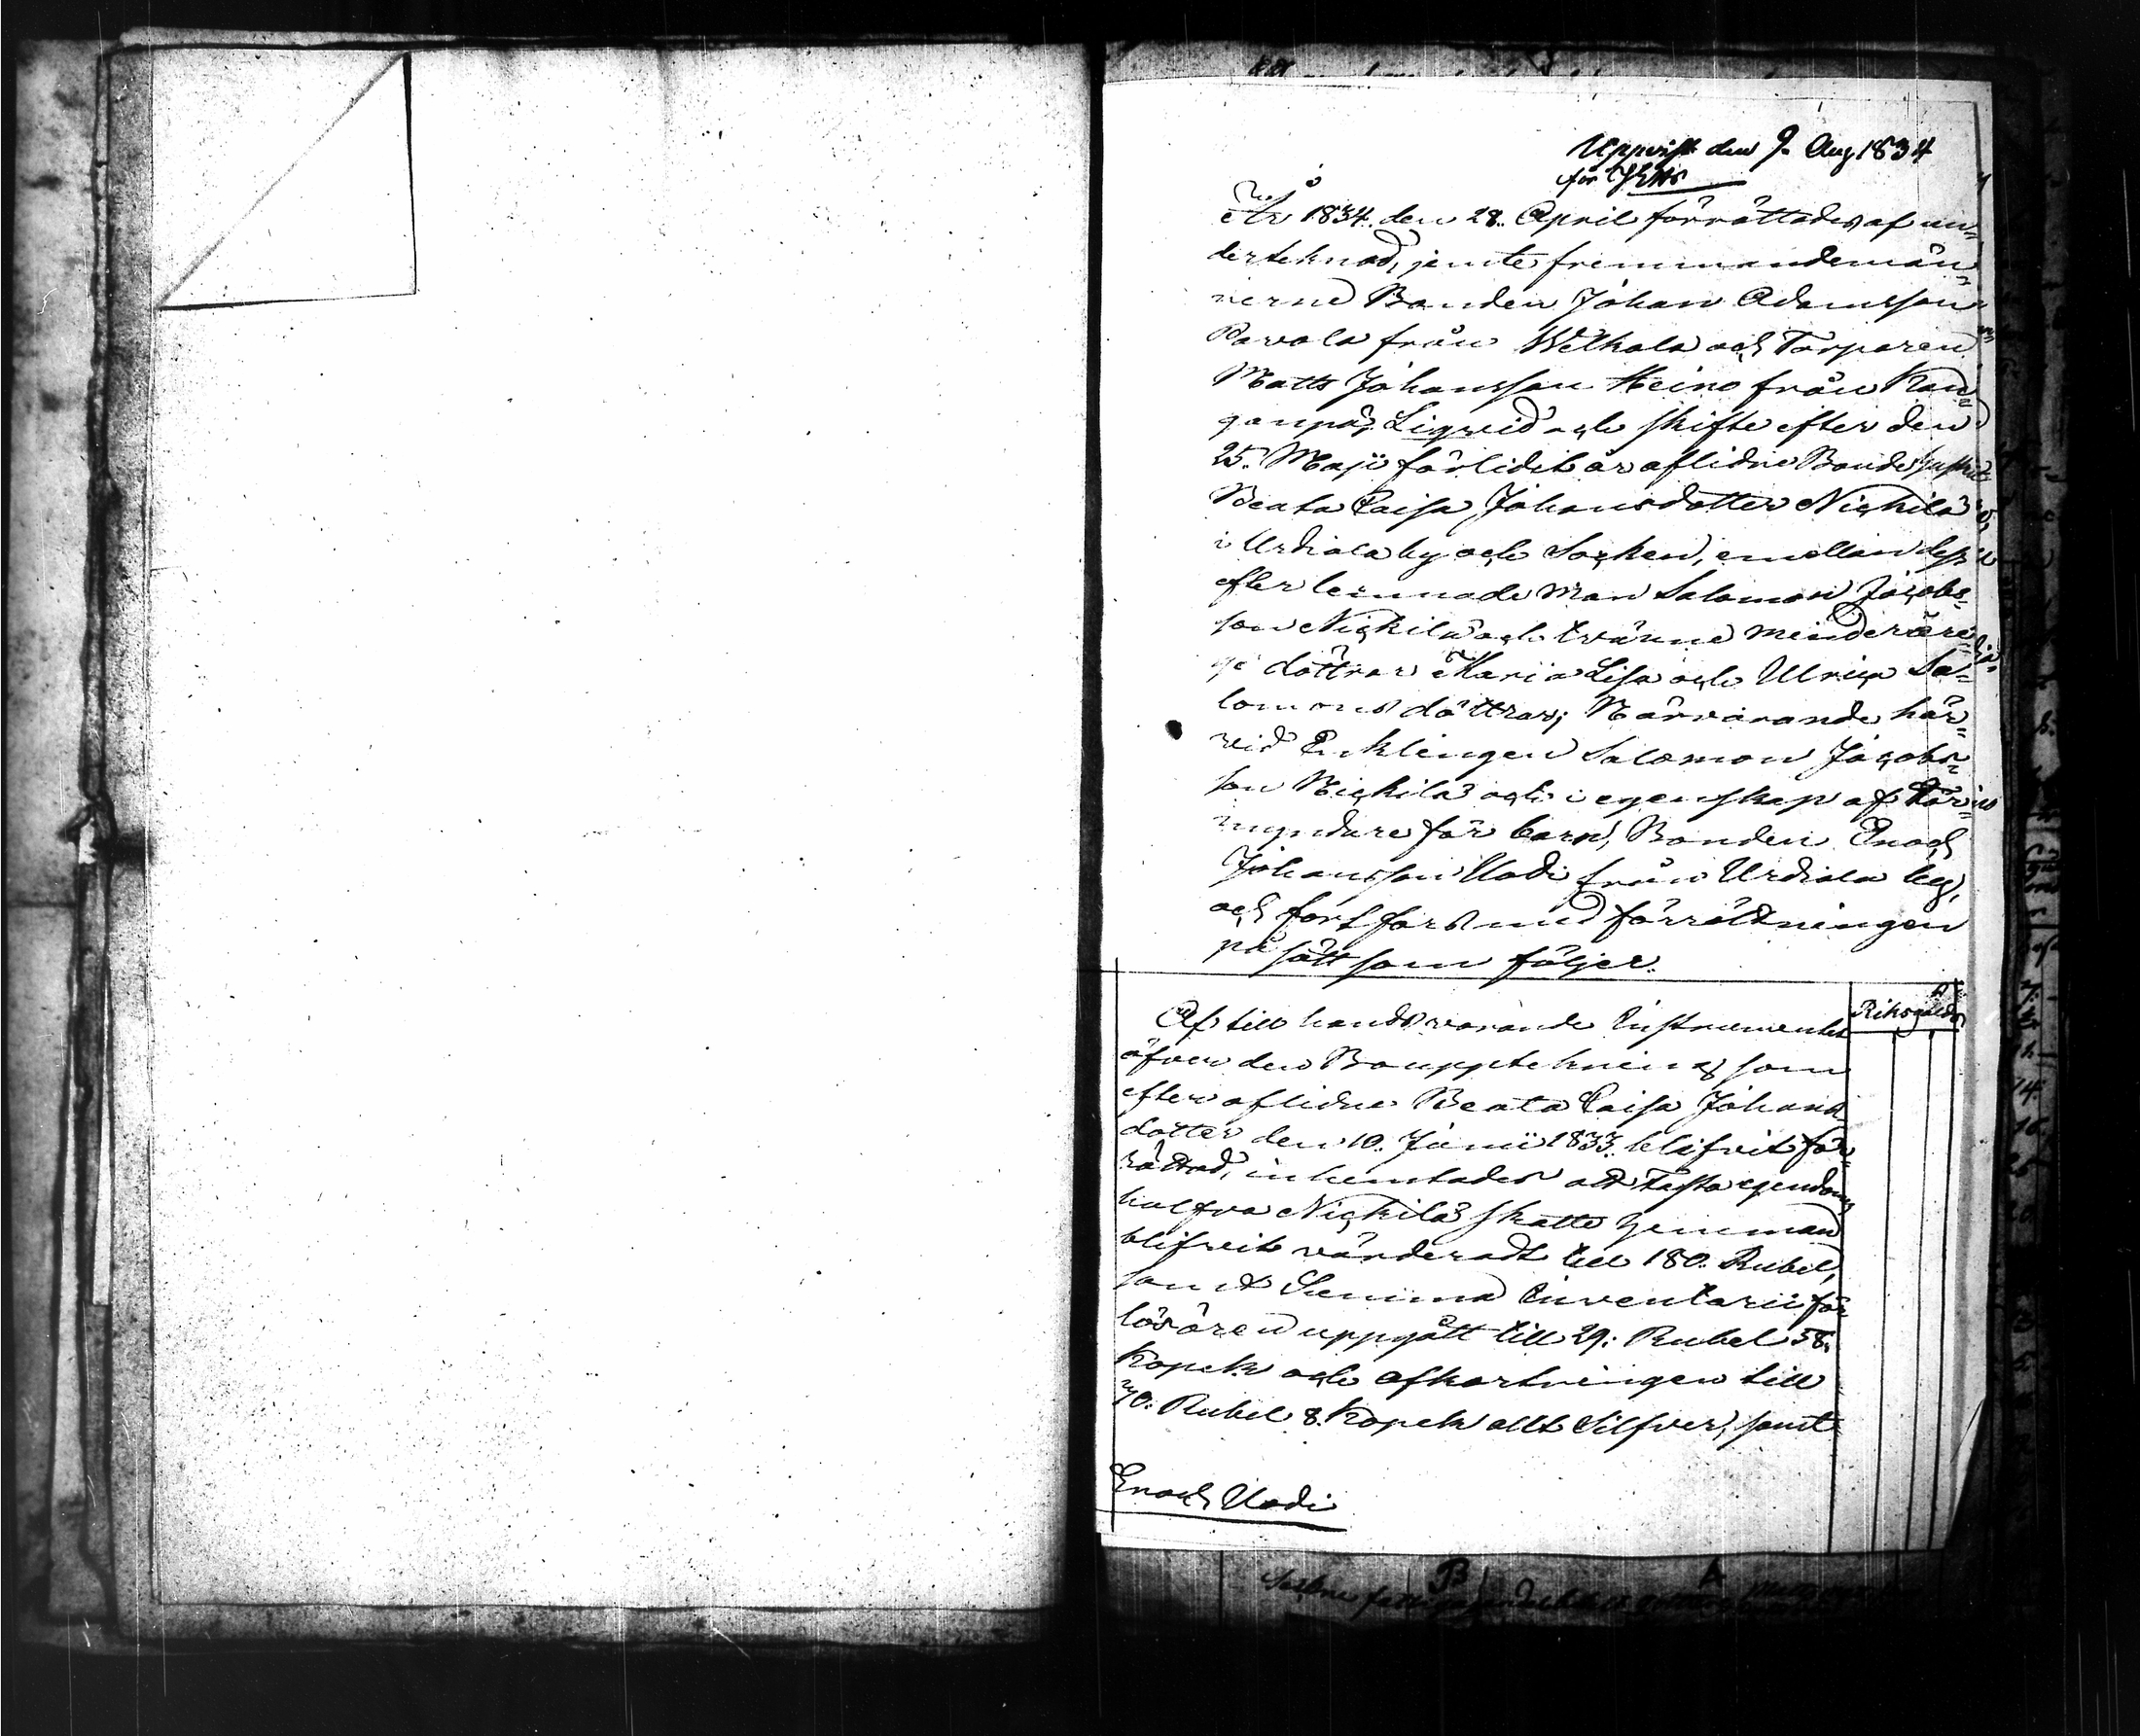 Uppvist den 9. Aug 1834
för
År 1834. den 28. April förrättades af un=
derteknad, jemte fremmandemän=
nerne Bonden Johan Adamsson
Pavola från Welkala och Torparen
Matts Johansson Heino från Kan=
ganpä, Liqvid och skifte efter den
25. Maji förlidit år aflidne Bonde hustru
Beata Caisa Johansdotter Nickilä
i Urdiala by och Socken, emellan dess
efterlemnade man Salomon Jacobs=
son Nickilä och tvänne minderåri=
ge döttrar Maria Lisa och Ulrica Sa=
lomons döttrar; Närvarande här=
vid Enklingen Salomon Jacobs=
son Nickilä och i egenskap af För=
myndare för barn, Bonden Enoch
Johansson Uodi från Urdiala by,
och fortfors med förrättningen
på sätt som följer.
Riksgälds
Af till hands varande Instrumentet
öfver den Bouppteckning som
efter aflidne Beata Caisa Johans
dotter den 10. Junii 1833. blifvit för=
rättad, inhemtades att fasta egendomen
halfva Nickilä skatte hemman
blifvit värderadt till 180. Rubel,
samt Summa Inventarii för
lösören uppgått till 29: Rubel 58.
Kopek och afkortningen till
70. Rubel 8. Kopek allt Silfver, samt
Enoch Uodi